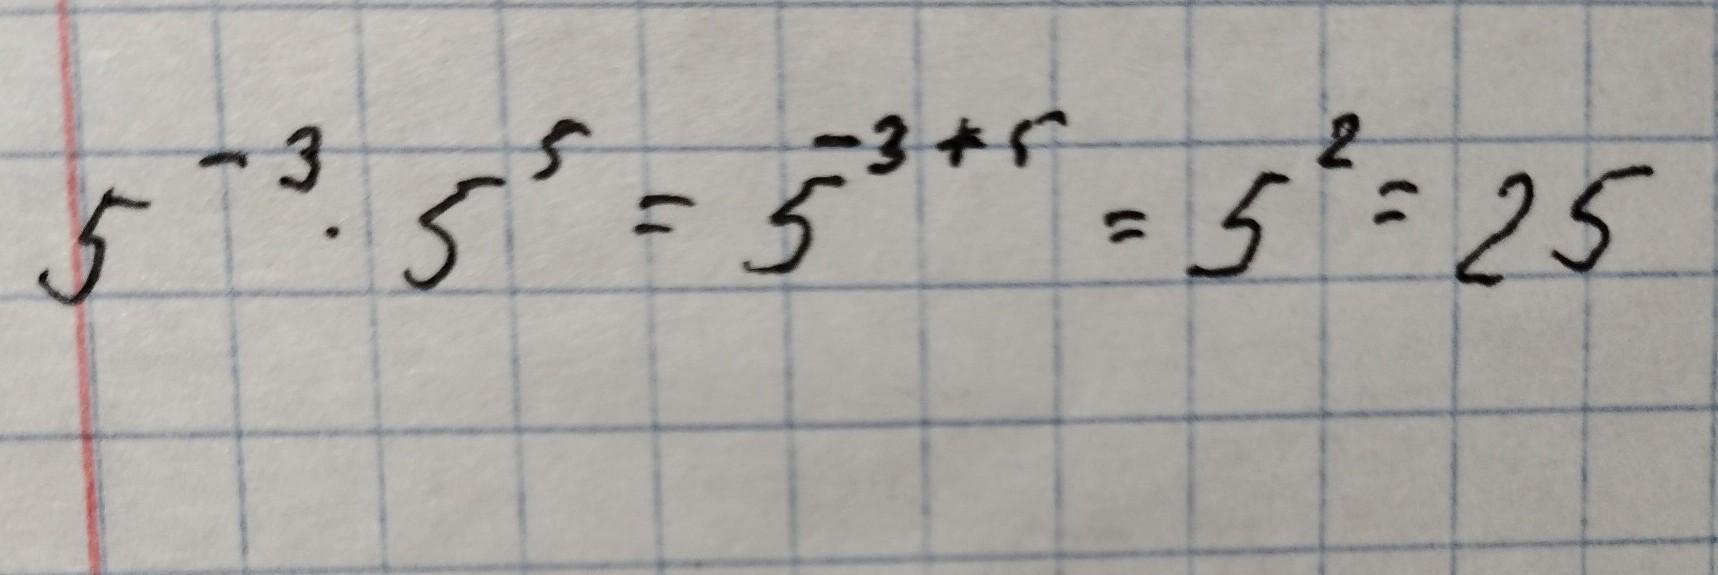 5⁻³ · 5⁵ = 5⁻³⁺⁵ = 5² = 25